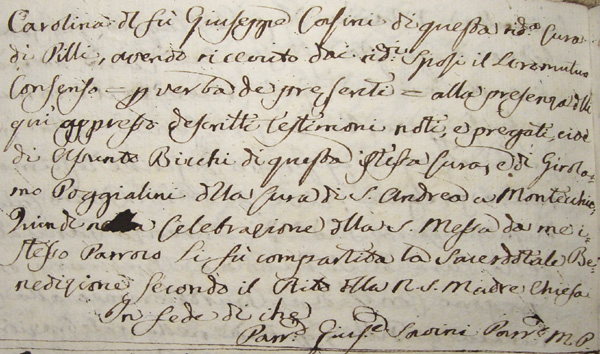 Carolina del fù Giuseppe Corsini di questa sid.ª Cura
di Pilli, avendo ricevuto dai sid.i Sposi il Loro mutuo
Consenso = p verba de presenti = alla presenza delli
qui appresso descritti testimoni noti, e pregati, cioè
di Assunto Bicchi di questa istessa Cura, e di Girola=
mo Poggialini della Cura di S. Andrea a Montecchio,
Quindi nella Celebrazione della S. Messa da me i=
stesso Parroco Li fù compartita la Sacerdotale Be=
nedizione secondo il Rito della N. S. Madre Chiesa
In fede di che
Parr.º Gius.e Savini Parr.º M. P.